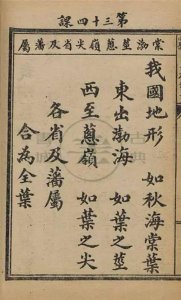 第三十四課
棠渤莖蔥嶺尖省及藩屬
我國地形　如秋海棠葉
東出渤海　如葉之莖
西至蔥嶺　如葉之尖
各省及藩屬
合為全葉